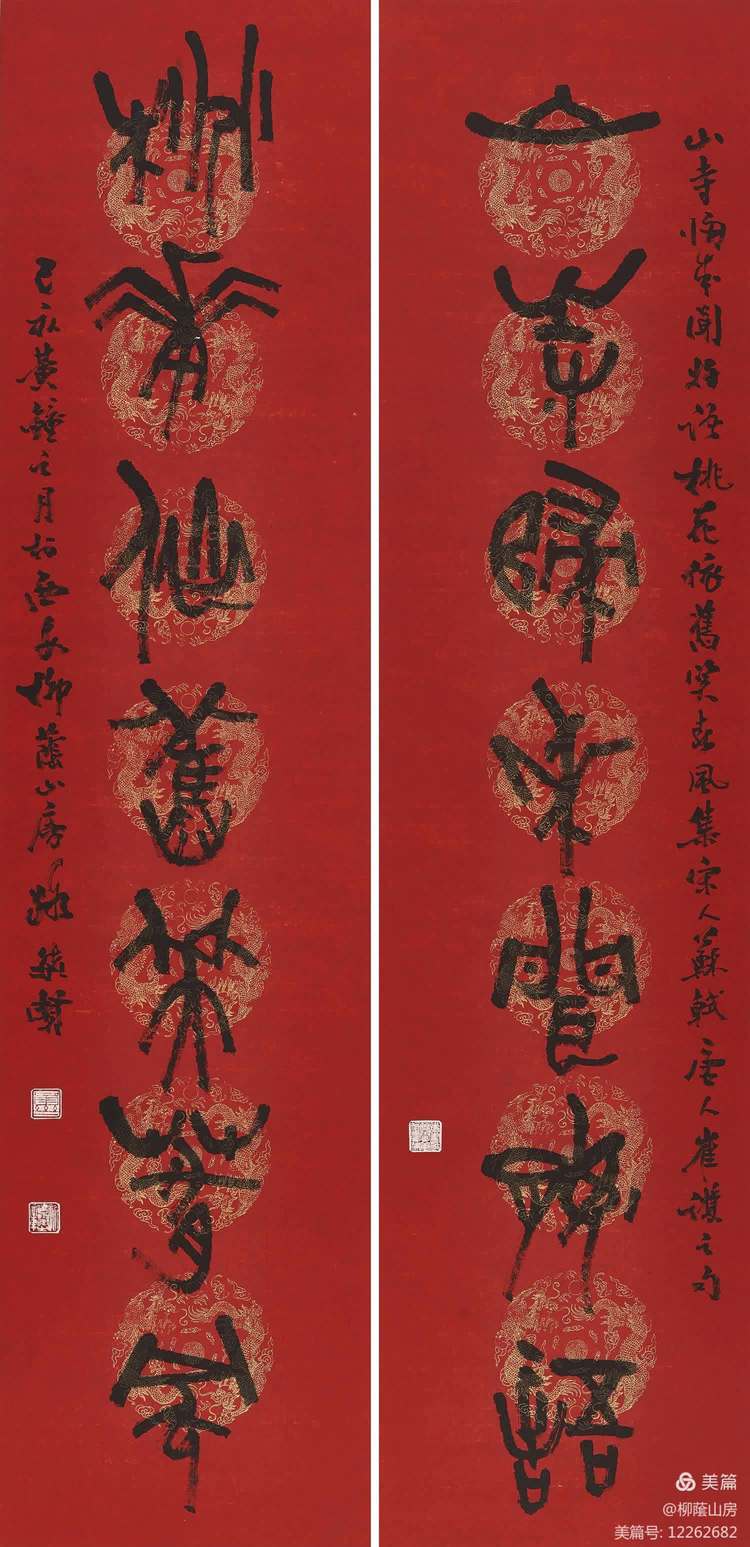 山寺歸來聞好語桃花依舊笑春風集宋人蘇軾唐人崔護之句
山寺歸來聞好語
桃花依舊笑春風
己亥黃鐘之月於西安柳蔭山房路毓賢
美篇
@柳蔭山房
美篇号: 12262682